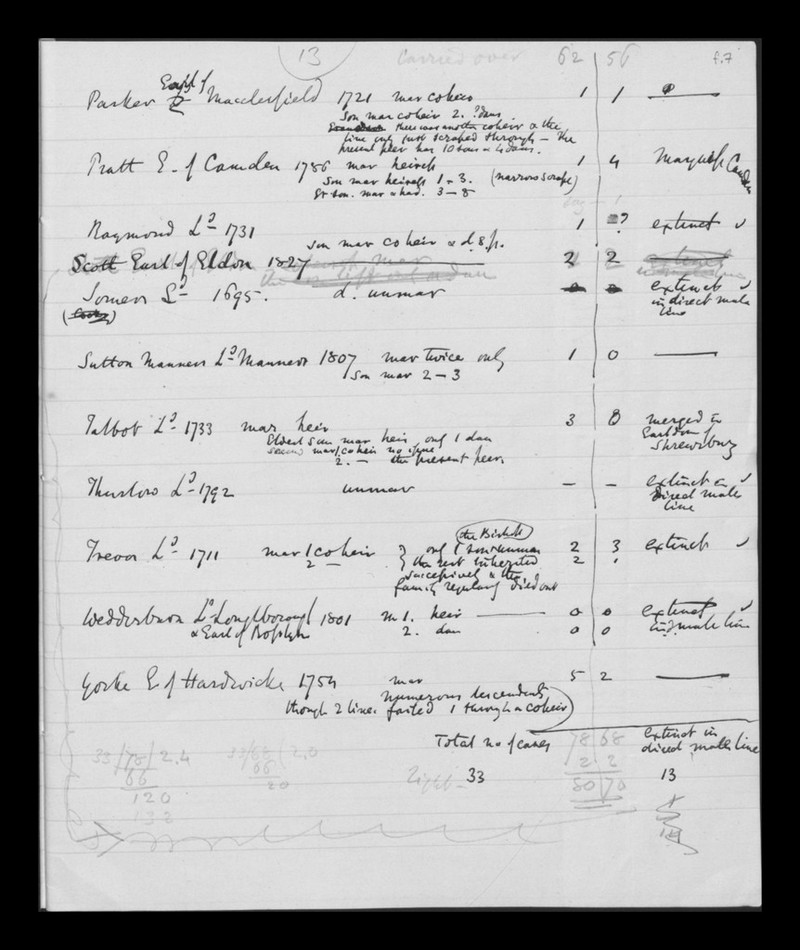 13 Carried over 62 56 f.7
Parker Earl of Macclesfield 1721 mar coheir 1 1 —
Son mar coheir 2. ? daus
there was another coheir & the
line only just scraped through – the
present peer has 10 sons & 4 daus.
Pratt E. of Camden 1786 mar heiress 1 4 Marquess Camden
Son mar heiress 1 – 3. (narrow scrape)
Gr son. mar & had. 3 – 8
Raymond Ld 1731 1 ? extinct ✓
son mar coheir & d.s.p.
Scott Earl of Eldon 1827 2 2
Somers Ld 1695. d. unmar extinct ✓
in direct male
line
Sutton Manners Ld Manners 1807 mar twice only 1 0 —
Son mar 2 – 3
Talbot Ld 1733 mar heir 3 0 merged in
Eldest son mar heir only 1 dau Earldom of
second mar 1 coheir no issue Shrewsbury
2. — the present peer.
Thurlow Ld 1792 unmar – – extinct in ✓
direct male
line
the Bishop
Trevor Ld 1711 mar 1 coheir } only 1 son unmar 2 3 extinct ✓
2 — } the rest inherited 2
successively & the
family regularly died out
Wedderburn Ld Loughborough 1801 m 1. heir — 0 0 extinct ✓
& Earl of Rosslyn 2. dau 0 0 in male line
Yorke E of Hardwicke 1754 mar 5 2 —
numerous descendents
though 2 lines failed 1 through a coheir
Total no of cases 78 68 extinct in
direct male line
33/78/2.4 33/68/2.0 2 2
66 66 33 80 70 13
120 20
132